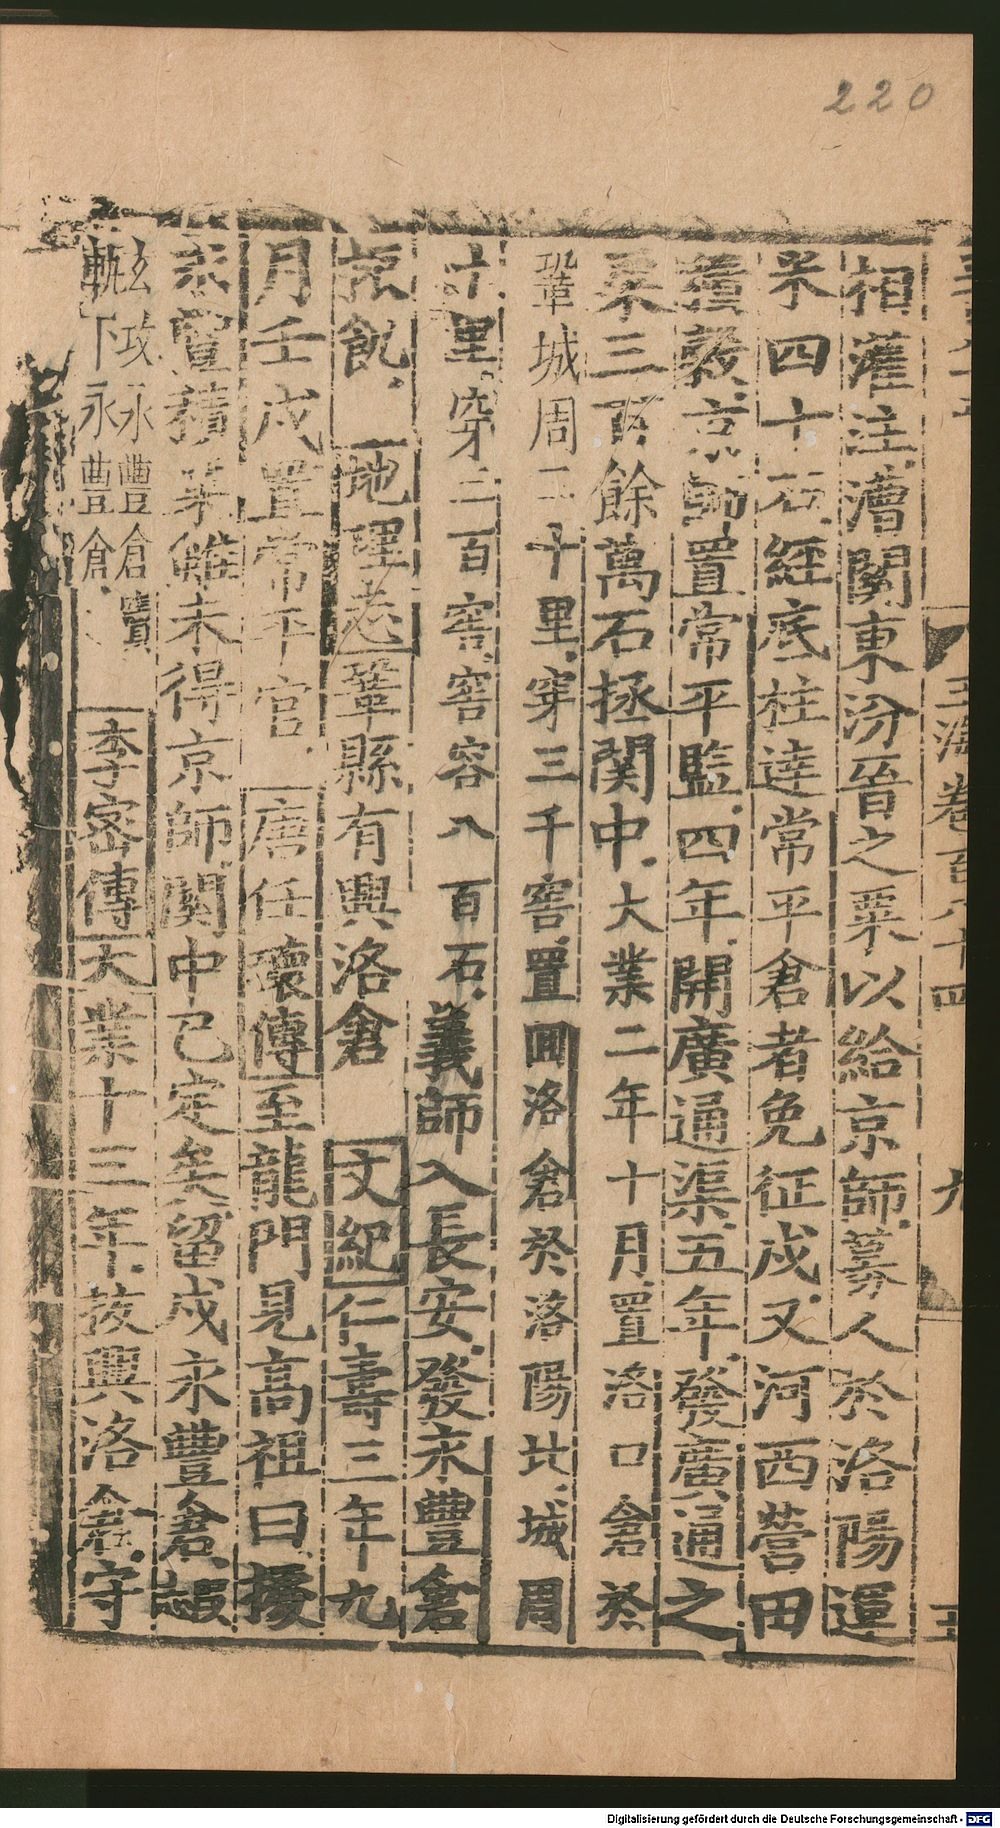 220
玉海卷百八十四
九
相灌注漕関東汾晉之粟以給京師募人於洛陽運
米四十石經底柱達常平倉者免征戍又河西營田
積穀京師置常平監四年開廣通渠五年發廣通之
粟三百餘萬石拯関中大業二年十月置洛口倉於
鞏城周二十里穿三千窖置回洛倉於洛陽北城周
十里穿三百窖窖容八百石義師入長安發永豐倉
振飢地理志鞏縣有興洛倉文紀仁壽三年九
月壬戌置常平官唐任瓌傳至龍門見高祖曰據
永豐積粟雖未得京師関中已定矣留戍永豐倉
玄攻永豐倉
軌下永豐倉
李密傳大業十三年故興洛倉守
Digitalisierung gefördert durch die Deutsche Forschungsgemeinschaft - DFG